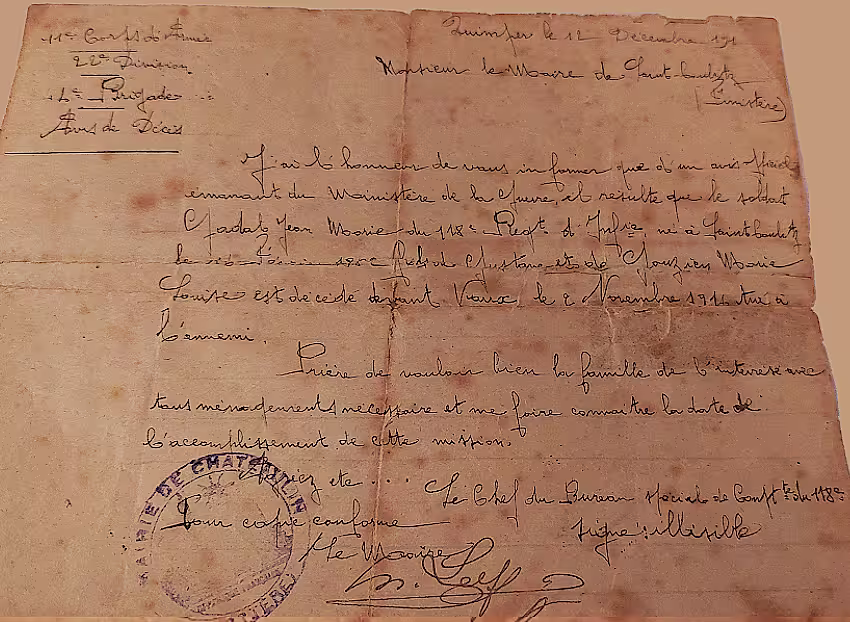 11e Corps d'Armée
22e Division
Brigade
Avis de Décès
Quimper le 12 Décembre 191
Monsieur le Maire de Saint-Goulitz
(Finistère)
J'ai l'honneur de vous informer que d'un avis officiel
émanant du Ministère de la Guerre, il résulte que le soldat
Jean Marie du 118e Regt d'Infie, né à Saint Goulitz
le fils de et de Marie
Louise est décédé devant le 2 Novembre 1914 tué à
l'ennemi.
Prière de vouloir bien la famille de l'intéressé avec
tous ménagements nécessaire et me faire connaitre la date de
l'accomplissement de cette mission.
etc ...
Le Chef du Bureau spécial de Compté du 118e
signé : illisible
Pour copie conforme
Le Maire
MAIRIE DE CHATEAULIN